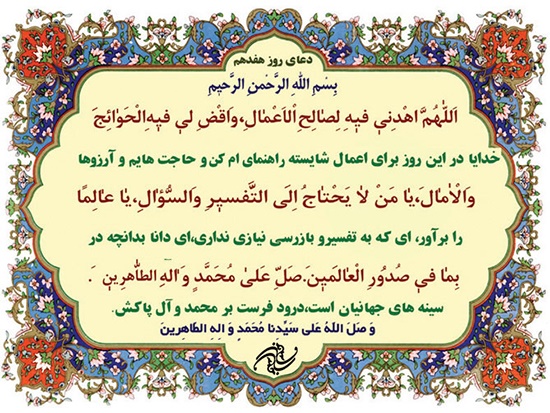 دعای روز هفدهم
بِسْمِ اللهِ الرَّحْمٰنِ الرَّحِیمِ
اَللّٰهُمَّ اهْدِنِي فِيهِ لِصَالِحِ الْاَعْمَالِ،وَاقْضِ لِي فِيهِ الْحَوٰائِجَ
خدایا در این روز برای اعمال شایسته راهنمای ام کن و حاجت هایم و آرزوها
وَالْاٰمٰالَ،یٰا مَنْ لاٰ یَحْتٰاجُ اِلَی التَّفْسیٖرِ وَالسُّؤٰالِ،یٰا عٰالِمًا
را برآور، ای که به تفسیرو بازرسی نیازی نداری،ای دانا بدانچه در
بِمٰا فیٖ صُدُورِ الْعٰالَمیٖنَ.صَلِّ عَلیٰ مُحَمَّدٍ وَآلِهِ الطّٰاهِریٖنَ .
سینه های جهانیان است،درود فرست بر محمد و آل پاکش.
وَ صَلَ اللهُ عَلی سَیِّدنا مُحَمَدٍ وَ الِهِ الطاهِرینَ